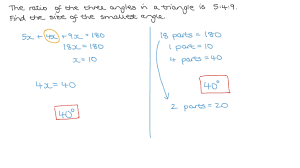 The ratio of the three angles in a triangle is 5:4:9.
Find the size of the smallest angle.
5x + 4x + 9x = 180
18x = 180
x = 10
4x = 40
40°
18 parts = 180
1 part = 10
4 parts = 40
40°
2 parts = 20